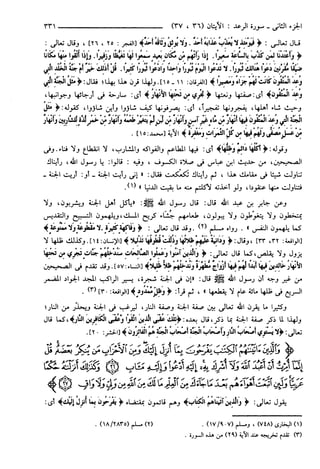 الجزء الثانى - سورة الرعد : الآيتان (٣٦ ، ٣٧) ٣٣١
قـال تعـالى : ﴿ فَيَوْمَئِذٍ لَّا يُعَذِّبُ عَذَابَهُ أَحَدٌ . وَلَا يُوثِقُ وَثَاقَهُ أَحَدٌ ﴾ (الفجر : ٢٥ ، ٢٦) ، وقال تعالى :
﴿ وَأَعْتَدْنَا لِمَن كَذَّبَ بِالسَّاعَةِ سَعِيرًا . إِذَا رَأَتْهُم مِّن مَّكَانٍ بَعِيدٍ سَمِعُوا لَهَا تَغَيُّظًا وَزَفِيرًا . وَإِذَا أُلْقُوا مِنْهَا مَكَانًا
ضَيِّقًا مُّقَرَّنِينَ دَعَوْا هُنَالِكَ ثُبُورًا . لَا تَدْعُوا الْيَوْمَ ثُبُورًا وَاحِدًا وَادْعُوا ثُبُورًا كَثِيرًا . قُلْ أَذَلِكَ خَيْرٌ أَمْ جَنَّةُ الْخُلْدِ الَّتِي
وُعِدَ الْمُتَّقُونَ كَانَتْ لَهُمْ جَزَاءً وَمَصِيرًا ﴾ (الفرقان : ١١ -١٥) .ولهذا قرن هذا بهذا ، فقال : ﴿ مَثَلُ الْجَنَّةِ الَّتِي
وُعِدَ الْمُتَّقُونَ ﴾ أى :صفتها ونعتها ﴿ تَجْرِي مِن تَحْتِهَا الْأَنْهَارُ ﴾ أى : سارحة فى أرجائها وجوانبها،
وحيث شاء أهلها، يفجرونها تفجيراً، أى: يصرفونها كيف شاؤوا وأين شاؤوا، كقوله: ﴿ مَثَلُ
الْجَنَّةِ الَّتِي وُعِدَ الْمُتَّقُونَ فِيهَا أَنْهَارٌ مِّن مَّاءٍ غَيْرِ آسِنٍ وَأَنْهَارٌ مِّن لَّبَنٍ لَّمْ يَتَغَيَّرْ طَعْمُهُ وَأَنْهَارٌ مِّنْ خَمْرٍ لَّذَّةٍ لِّلشَّارِبِينَ وَأَنْهَارٌ
مِّنْ عَسَلٍ مُّصَفًّى وَلَهُمْ فِيهَا مِن كُلِّ الثَّمَرَاتِ وَمَغْفِرَةٌ ﴾ الآية (محمد:١٥) .
وقوله: ﴿ أُكُلُهَا دَائِمٌ وَظِلُّهَا ﴾ أى: فيها المطاعم والفواكه والمشارب، لا انقطاع ولا فناء. وفى
الصحيحين، من حديث ابن عباس فى صلاة الكسوف ، وفيه : قالوا: يا رسول الله، رأيناك
تناولت شيئا فى مقامك هذا ، ثم رأيناك تكعكعت فقال: « إنى رأيت الجنة - أو: أريت الجنة -
فتناولت منها عنقودا، ولو أخذته لأكلتم منه ما بقيت الدنيا » (١) .
وعن جابر بن عبد الله قال: قال رسول الله ﷺ: «يأكل أهل الجنة ويشربون، ولا
يمتخطون ولا يتغوطون ولا يبولون، طعامهم جُشَاء كريح المسك،ويلهمون التسبيح والتقديس
كما يلهمون النفس » . رواه مسلم (٢) .وقد قال تعالى : ﴿ وَفَاكِهَةٍ كَثِيرَةٍ . لَّا مَقْطُوعَةٍ وَلَا مَمْنُوعَةٍ ﴾
(الواقعة: ٣٢، ٣٣) ،وقال: ﴿ وَدَانِيَةً عَلَيْهِمْ ظِلَالُهَا وَذُلِّلَتْ قُطُوفُهَا تَذْلِيلًا ﴾ (الإنسان:١٤) .وكذلك ظلها لا
يزول ولا يقلص،كما قال تعالى: ﴿ وَالَّذِينَ آمَنُوا وَعَمِلُوا الصَّالِحَاتِ سَنُدْخِلُهُمْ جَنَّاتٍ تَجْرِي مِن تَحْتِهَا
الْأَنْهَارُ خَالِدِينَ فِيهَا أَبَدًا لَّهُمْ فِيهَا أَزْوَاجٌ مُّطَهَّرَةٌ وَنُدْخِلُهُمْ ظِلًّا ظَلِيلًا ﴾ (النساء:٥٧) .وقد تقدم فى الصحيحين
من غير وجه أن رسول الله ﷺ قال: «إن فى الجنة شجرة، يسير الراكب المجد الجواد المضمر
السريع فى ظلها مائة عام لا يقطعها » ، ثم قرأ: ﴿ وَظِلٍّ مَّمْدُودٍ ﴾ (الواقعة : ٣٠) (٣) .
وكثيرا ما يقرن الله تعالى بين صفة الجنة وصفة النار، ليرغب فى الجنة ويحذر من النار؛
ولهذا لما ذكر صفة الجنة بما ذكر،قال بعده: ﴿ تِلْكَ عُقْبَى الَّذِينَ اتَّقَوا وَّعُقْبَى الْكَافِرِينَ النَّارُ ﴾ ،كما قال
تعالى: ﴿ لَا يَسْتَوِي أَصْحَابُ النَّارِ وَأَصْحَابُ الْجَنَّةِ أَصْحَابُ الْجَنَّةِ هُمُ الْفَائِزُونَ ﴾ (الحشر: ٢٠) .
وَالَّذِينَ ءَاتَيْنَاهُمُ الْكِتَابَ يَفْرَحُونَ بِمَا أُنزِلَ إِلَيْكَ وَمِنَ الْأَحْزَابِ مَن يُنكِرُ بَعْضَهُ قُلْ
إِنَّمَا أُمِرْتُ أَنْ أَعْبُدَ اللَّهَ وَلَا أُشْرِكَ بِهِ إِلَيْهِ أَدْعُو وَإِلَيْهِ مَآبِ ۝ وَكَذَلِكَ أَنزَلْنَاهُ حُكْمًا
عَرَبِيًّا وَلَئِنِ اتَّبَعْتَ أَهْوَاءَهُم بَعْدَ مَا جَاءَكَ مِنَ الْعِلْمِ مَا لَكَ مِنَ اللَّهِ مِن وَلِيٍّ وَلَا وَاقٍ ۝
يقول تعالى: ﴿ وَالَّذِينَ آتَيْنَاهُمُ الْكِتَابَ ﴾ وهم قائمون بمقتضاه ﴿ يَفْرَحُونَ بِمَا أُنزِلَ إِلَيْكَ ﴾ أى:
(١) البخارى (٧٤٨) ، ومسلم (١٧/٩٠٧) . (٢) مسلم (١٨/٢٨٣٥) .
(٣) تقدم تخريجه عند الآية (٢٩) من هذه السورة .